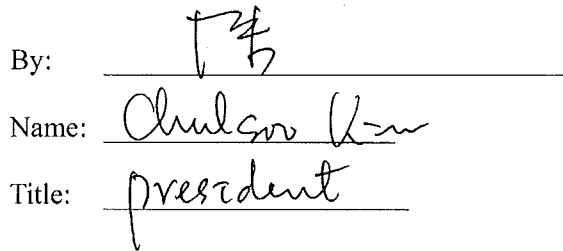 By:
Name: Chulsoo Kim
Title: president